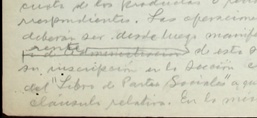 cuota de los productos o
rrespondientes. Las operaciones
deberán ser desde luego manif
de esta
su inscripción en la Sección
del "Libro de Partes Sociales" a que
cláusula relativa. En la mis